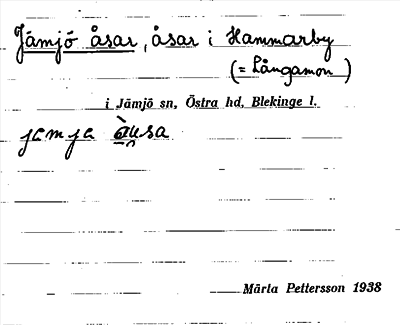 Jämjö åsar, åsar i Hammarby
(= Långamon )
i Jämjö sn, Östra hd, Blekinge l.
Märta Pettersson 1938